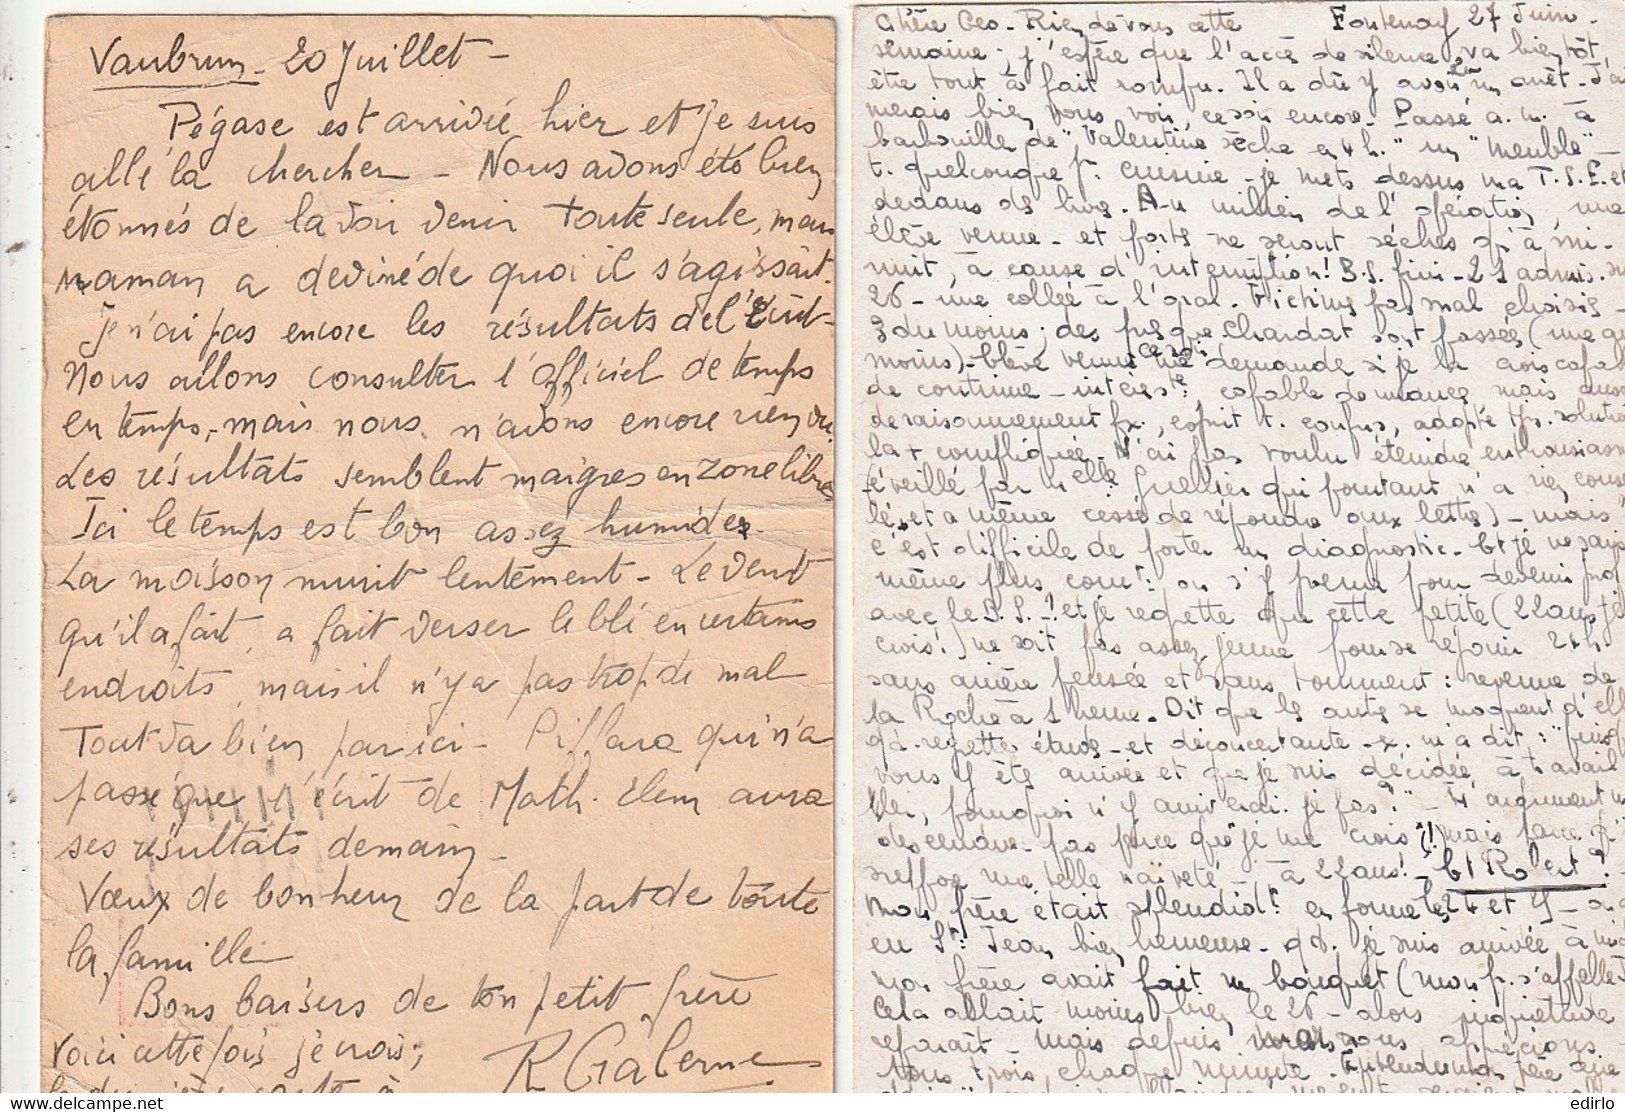 Vaubrun - 20 Juillet -
Pégase est arrivée hier et je suis
allé la chercher - Nous avons été bien
étonnés de la voir venir toute seule, mais
maman a deviné de quoi il s'agissait.
Je n'ai pas encore les résultats de l'écrit -
Nous allons consulter l'officiel de temps
en temps, mais nous n'avons encore rien vu.
Les résultats semblent maigres en zone libre
Ici le temps est bon assez humide
La moisson murit lentement - Le vent
qu'il a fait, a fait verser le blé en certains
endroits, mais il n'y a pas trop de mal
Tout va bien par ici - Piffara qui n'a
passé que l'écrit de Math. Elem aura
ses résultats demain -
Voeux de bonheur de la part de toute
la famille
Bons baisers de ton petit frère
Voici cette fois je crois,
R Galerne
Chère Geo - Rien de vous cette Fontenay 27 Juin -
semaine ; j'espère que l'accès de silence va bientôt
être tout à fait rompu. Il a dû y avoir un arrêt - J'ai
merais bien vous voir, ce soir encore. Passé a. m. à
de "Valentine sèche en 4 h." un "meuble" -
t. quelconque pr. cuisine - je mets dessus ma T.S.F. et
dedans des livres. Au milieu de l'opération, une
élève venue - et ne seront sèches qu'à mi-
nuit, à cause d'interruption ! B.S. fini - 21 admis. sur
26 - une collée à l'oral. Victimes pas mal choisies -
3 du moins ; des presque Chardat sont passées (une au
moins) - élève venue ce soir me demande si je la crois capable
de continuer - interesste, capable de nuances mais aussi
de raisonnement fx., esprit t. confus, adopte tjs. solution
la + compliquée - N'ai pas voulu éteindre enthousiasme
(éveillé par Melle qui pourtant n'a rien conse
lé, et a même cessé de répondre aux lettres) - mais
c'est difficile de porter un diagnostic - Et je ne sais
même plus comt on s'y prend pour devenir prof
avec le B.S. -! et je regrette que cette petite (22 ans je
crois !) ne soit pas assez jeune pour se réjouir 24 h.
sans arrière pensée et sans tourment : revenue de
la Roche à 1 heure. Dit que les autres se moquent d'elle
qd. regrette études - et déconcertante - x. m'a dit : "puisque
vous y êtes arrivée et que je suis décidée à travail
ler, pourquoi n'y arriverai-je pas ?" - L'argument
descendre - pas parce que "je me crois" (!) mais parce q.
une telle naïveté - à 22 ans ! - Et Robert ?
Mon frère était splendidt en forme les 24 et 25 -
en St. Jean bien heureuse - qd. je suis arrivée à midi
mon frère avait fait un bouquet (mon p. s'appelle J
Cela allait moins bien le 26 - alors inquiétude
reparait - mais depuis nous apprécions
tous trois, chaque minute. Entendu mon père dire